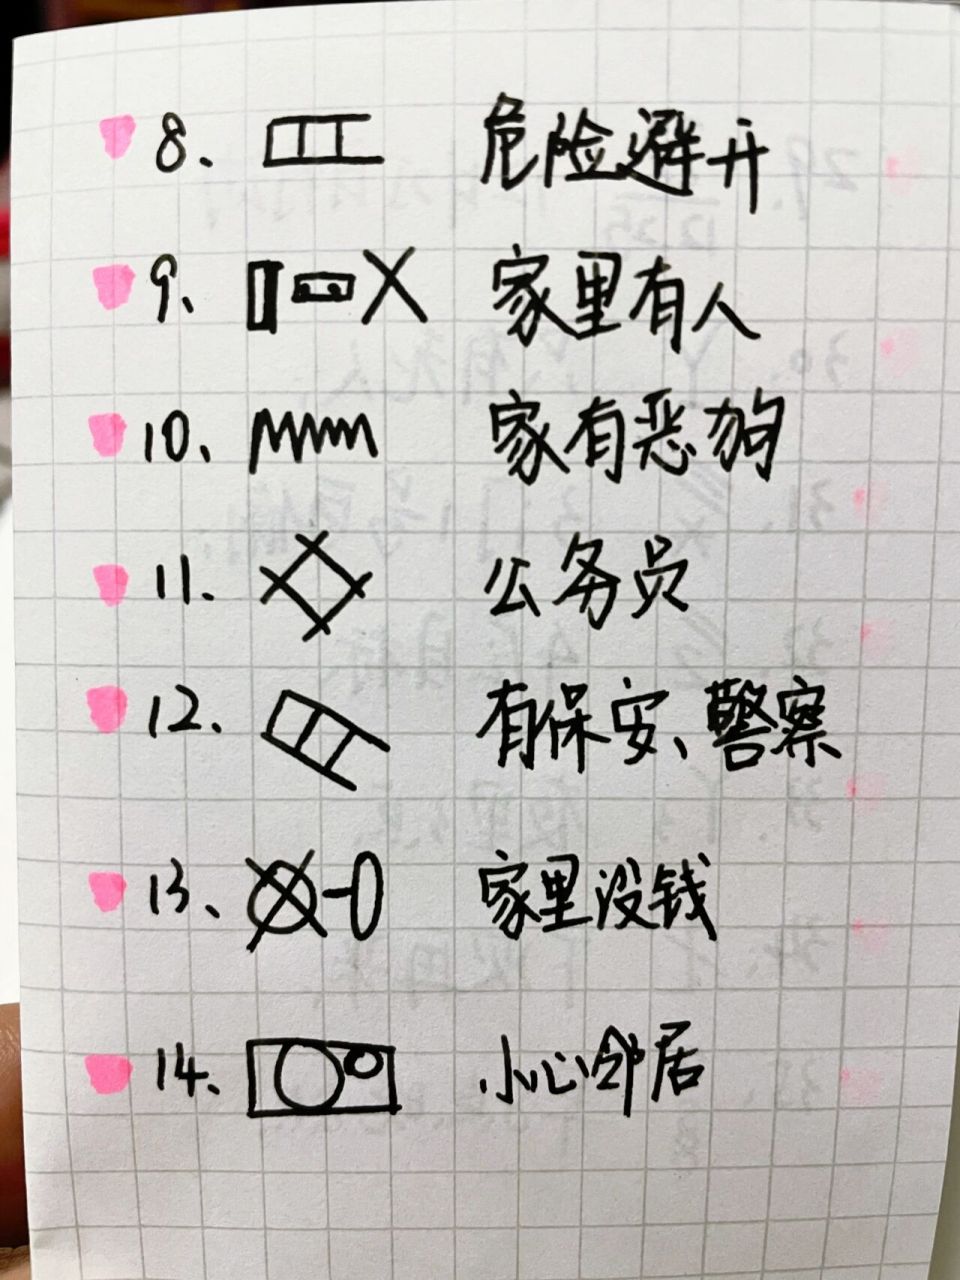 8、 危险避开
9、 家里有人
10、 家有恶狗
11、 公务员
12、 有保安、警察
13、 家里没钱
14、 小心邻居